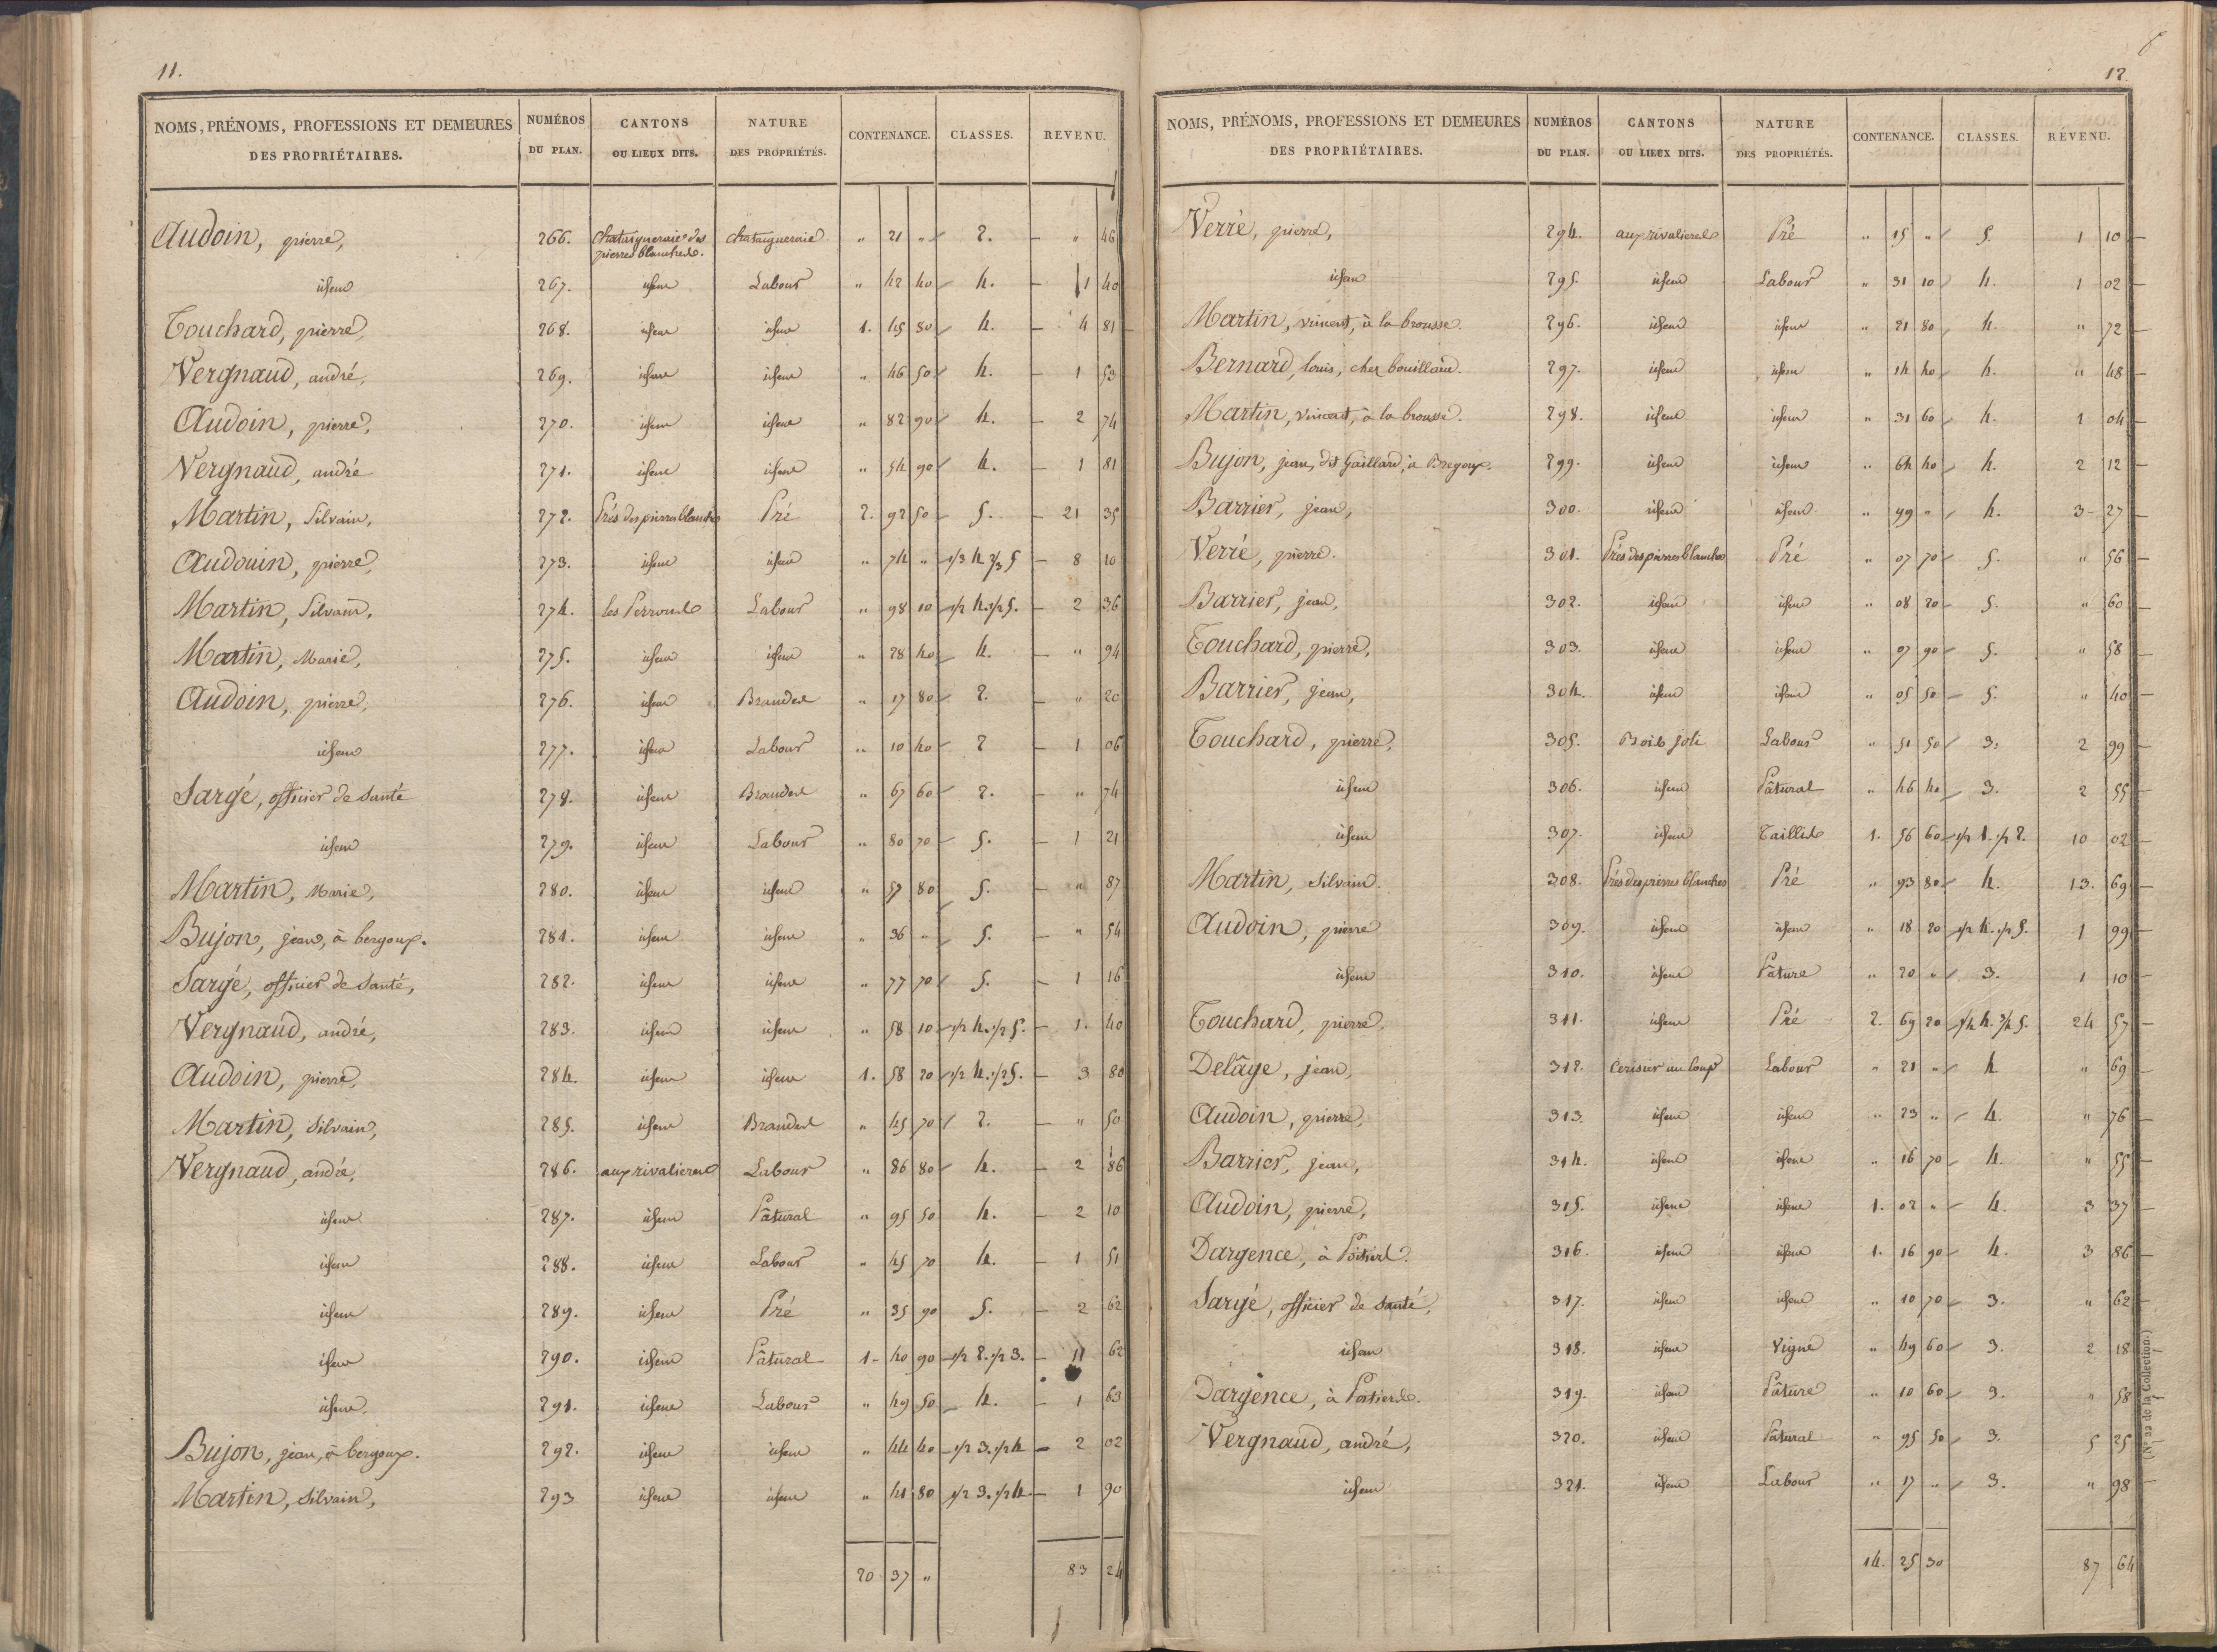 11.
NOMS, PRÉNOMS, PROFESSIONS ET DEMEURES DES PROPRIÉTAIRES. NUMÉROS DU PLAN. CANTONS OU LIEUX DITS. NATURE DES PROPRIÉTÉS. CONTENANCE. CLASSES. REVENU.
Audoin, pierre, 266. Chataigneraie des pierres blanches. chataigneraie " 21 " 2. " 46
idem 267. idem Labour " 42 40 4. 1 40
Touchard, pierre, 268. idem idem 1. 45 80 4. 4 81
Vergnaud, andré, 269. idem idem " 46 50 4. 1 53
Audoin, pierre, 270. idem idem " 82 90 4. 2 74
Vergnaud, andré 271. idem idem " 54 90 4. 1 81
Martin, Silvain, 272. Prés des pierres blanches Pré 2. 92 50 5. 21 35
Audouin, pierre, 273. idem idem " 74 " 1/3 4 2/3 5 8 10
Martin, Silvain, 274. les Perrouses Labour " 98 10 1/2 4. 1/2 5. 2 36
Martin, Marie, 275. idem idem " 28 40 4. " 94
Audoin, pierre, 276. idem Brandes " 17 80 2. " 20
idem 277. idem Labour " 10 40 2 1 06
Sargé, officier de Santé 278. idem Brandes " 67 60 2. " 74
idem 279. idem Labour " 80 70 5. 1 21
Martin, Marie, 280. idem idem " 57 80 5. " 87
Bujon, jean, à bergoux. 281. idem idem " 36 " 5. " 54
Sargé, officier de Santé, 282. idem idem " 77 70 5. 1 16
Vergnaud, andré, 283. idem idem " 58 10 1/2 4. 1/2 5. 1. 40
Audoin, pierre, 284. idem idem 1. 58 20 1/2 4. 1/2 5. 3 80
Martin, Silvain, 285. idem Brandes " 45 70 2. " 50
Vergnaud, andré, 286. aux rivalieres Labour " 86 80 4. 2 86
idem 287. idem Pâtural " 95 50 4. 2 10
idem 288. idem Labour " 45 70 4. 1 51
idem 289. idem Pré " 35 90 5. 2 62
idem 290. idem Pâtural 1 40 90 1/2 2. 1/2 3. 11 62
idem 291. idem Labour " 49 50 4. 1 63
Bujon, jean, à bergoux. 292. idem idem " 44 40 1/2 3. 1/2 4 2 02
Martin, Silvain, 293 idem idem " 41 80 1/2 3. 1/2 4. 1 90
20 37 " 83 24
12.
NOMS, PRÉNOMS, PROFESSIONS ET DEMEURES DES PROPRIÉTAIRES. NUMÉROS DU PLAN. CANTONS OU LIEUX DITS. NATURE DES PROPRIÉTÉS. CONTENANCE. CLASSES. REVENU.
Verré, pierre, 294. aux rivalieres Pré " 15 " 5. 1 10
idem 295. idem Labour " 31 10 4. 1 02
Martin, vincent, à la brousse. 296. idem idem " 21 80 4. " 72
Bernard, louis, chez bouillaud. 297. idem idem " 14 40 4. " 48
Martin, vincent, à la brousse. 298. idem idem " 31 60 4. 1 04
Bujon, jean, dit Gaillard, à Bregoux. 299. idem idem " 64 40 4. 2 12
Barrier, jean, 300. idem idem " 99 " 4. 3 27
Verré, pierre. 301. Prés des pierres blanches Pré " 07 70 5. " 56
Barrier, jean, 302. idem idem " 08 20 5. " 60
Touchard, pierre, 303. idem idem " 07 90 5. " 58
Barrier, jean, 304. idem idem " 05 50 5. " 40
Touchard, pierre, 305. Bois joli Labour " 51 50 3. 2 99
idem 306. idem Pâtural " 46 40 3. 2 55
idem 307. idem Taillis 1. 56 60 1/2 1. 1/2 2. 10 02
Martin, Silvain. 308. Prés des pierres blanches Pré " 93 80 4. 13. 69
Audoin, pierre 309. idem idem " 18 20 1/2 4. 1/2 5. 1 99
idem 310. idem Pâture " 20 " 3. 1 10
Touchard, pierre, 311. idem Pré 2. 69 20 1/4 4. 3/4 5. 24 57
Delâge, jean, 312. Cerisier au loup Labour " 21 " 4 " 69
Audoin, pierre, 313. idem idem " 23 " 4. " 76
Barrier, jean, 314. idem idem " 16 70 4. " 55
Audoin, pierre, 315. idem idem 1. 02 " 4. 3 37
Dargence, à Poitiers. 316. idem idem 1. 16 90 4. 3 86
Sargé, officier de Santé, 317. idem idem " 10 70 3. " 62
idem 318. idem Vigne " 49 60 3. 2 18
Dargence, à Poitiers. 319. idem Pâture " 10 60 3. " 58
Vergnaud, andré, 320. idem Pâtural " 95 50 3. 5 25
idem 321. idem Labour " 17 " 3. " 98
14. 25 30 87 64
(N° 22 de la Collection.)